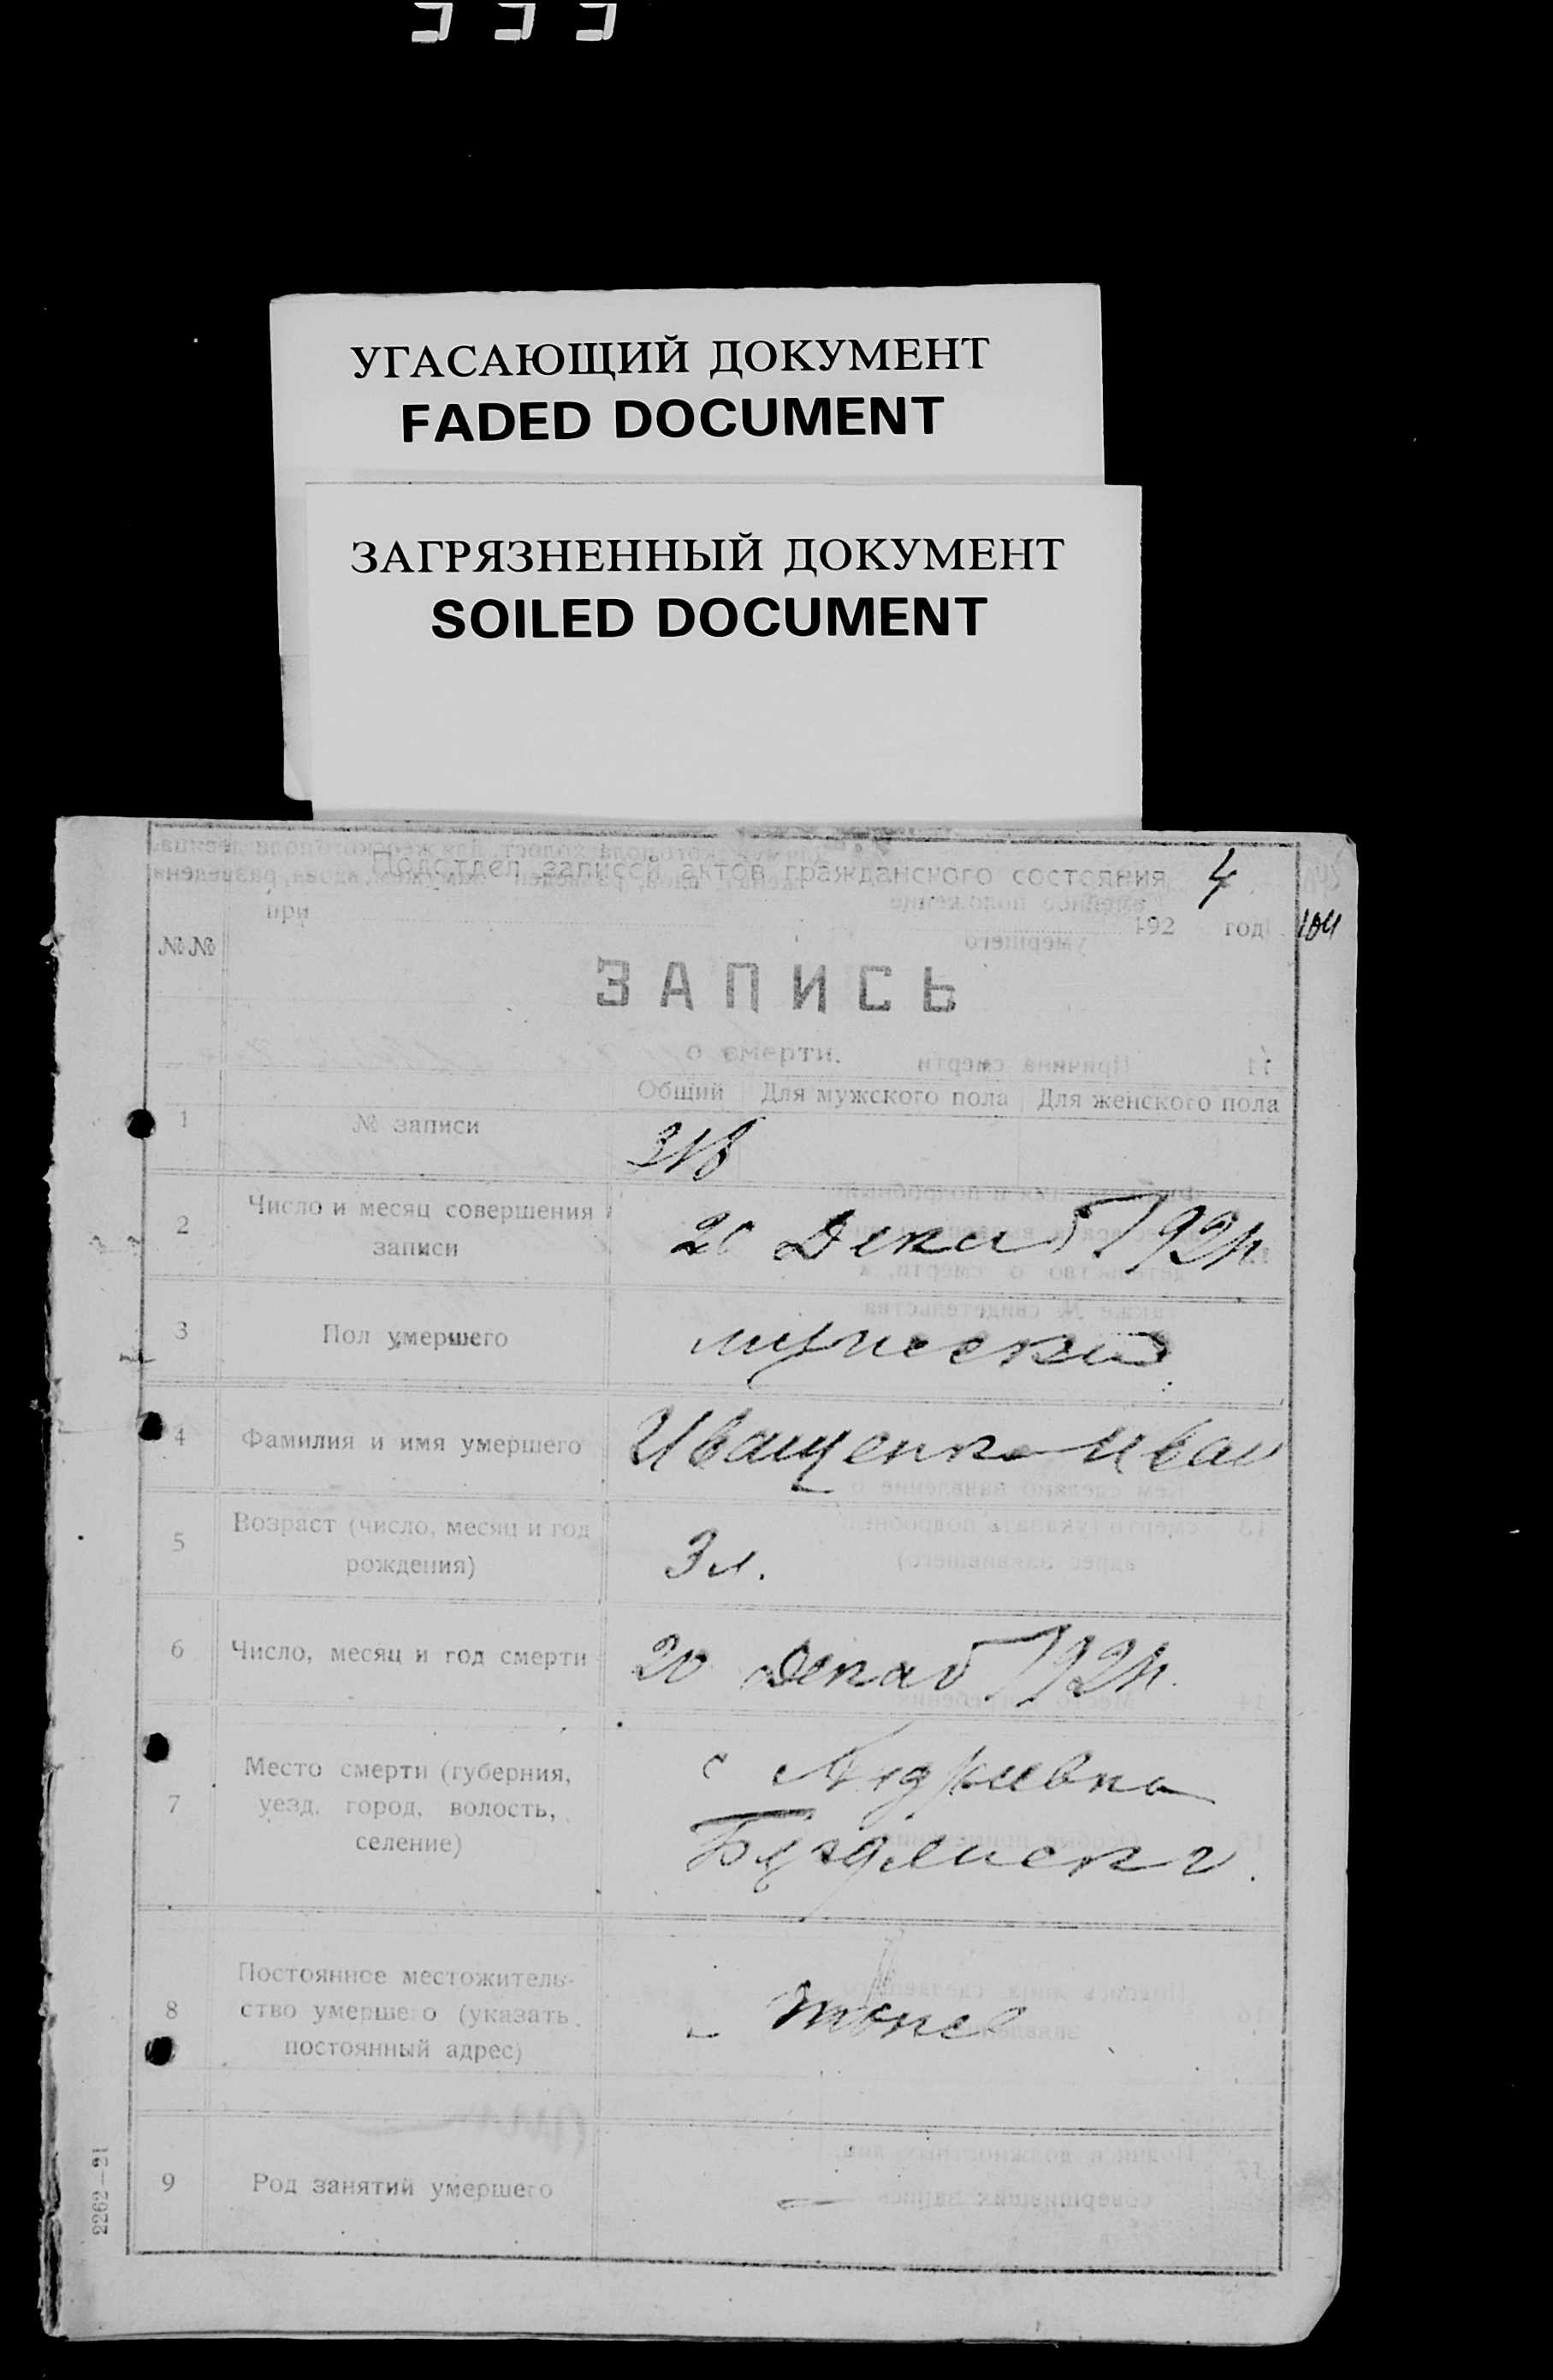 УГАСАЮЩИЙ ДОКУМЕНТ
FADED DOCUMENT
ЗАГРЯЗНЕННЫЙ ДОКУМЕНТ
SOILED DOCUMENT
Подотдел записей актов гражданского состояния 4
при 192 год
104
№№
ЗАПИСЬ
о смерти.
Общий Для мужского пола Для женского пола
1 № записи 318
2 Число и месяц совершения
записи
20 Декаб 1924
3 Пол умершего мужеский
4 Фамилия и имя умершего Иващенко Иван
5 Возраст (число, месяц и год
рождения)
3 л.
6 Число, месяц и год смерти 20 Декаб 1924
7 Место смерти (губерния,
уезд, город, волость,
селение)
с
8 Постоянное местожитель-
ство умершего (указать
постоянный адрес)
9 Род занятий умершего —
2262—21